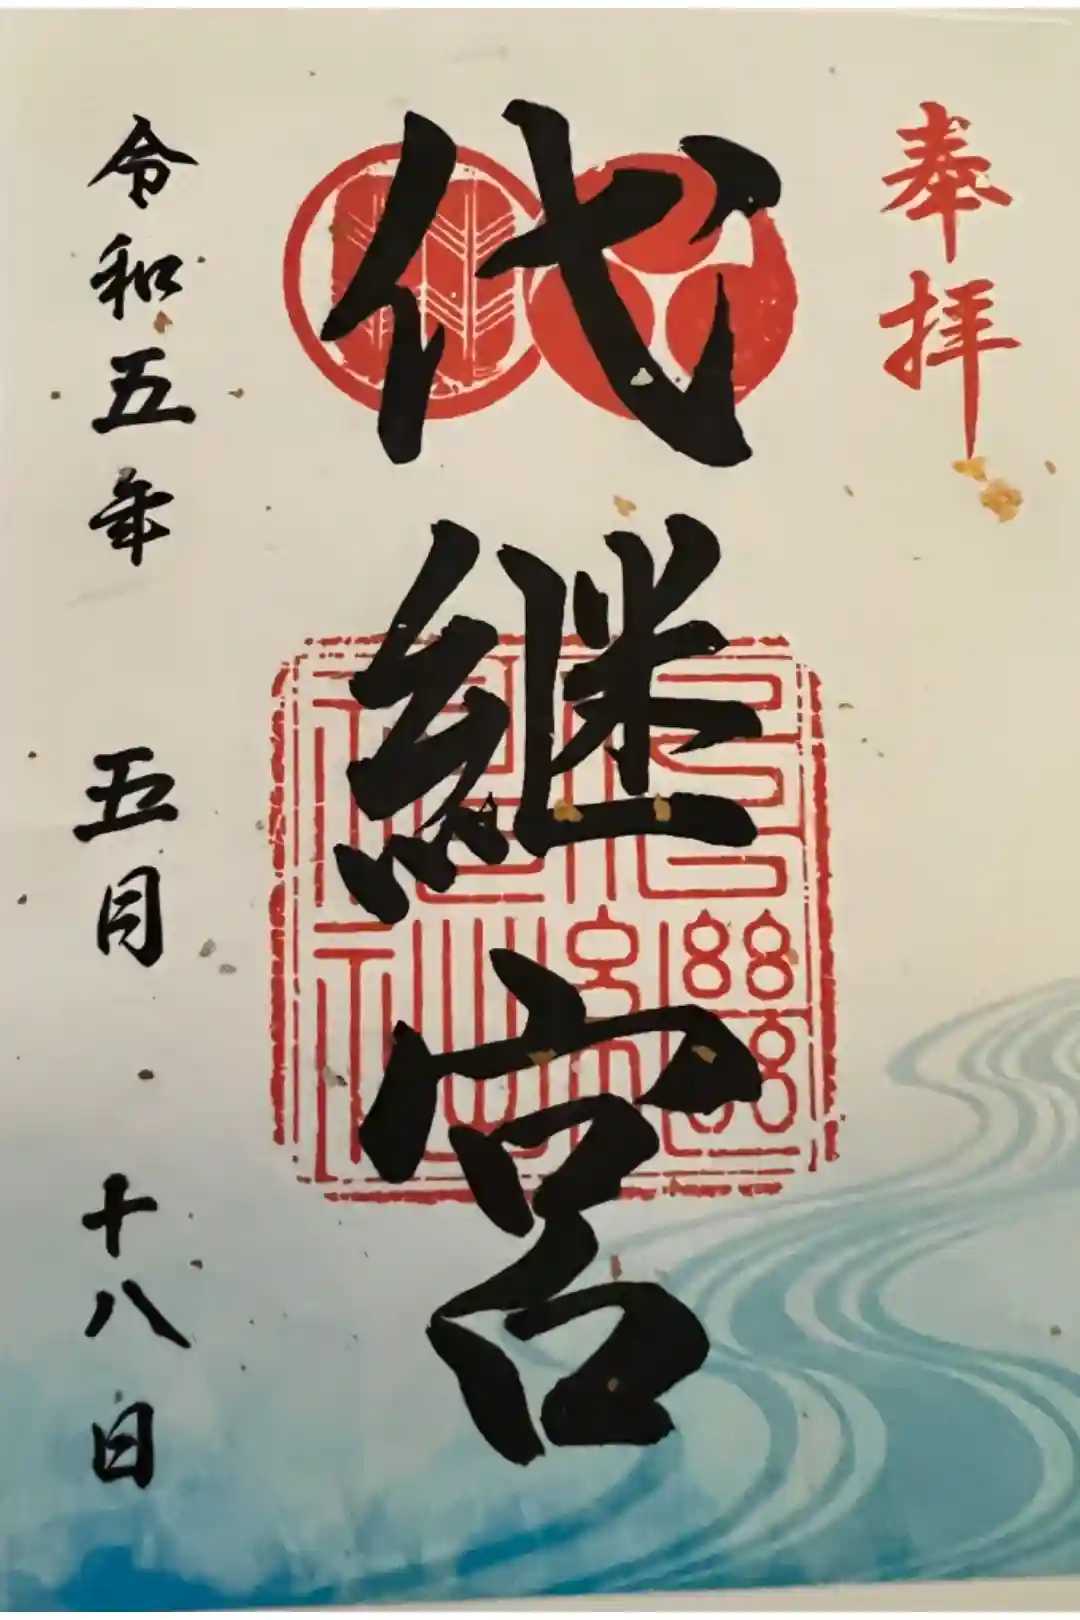 奉拝
代継宮
令和五年 五月 十八日